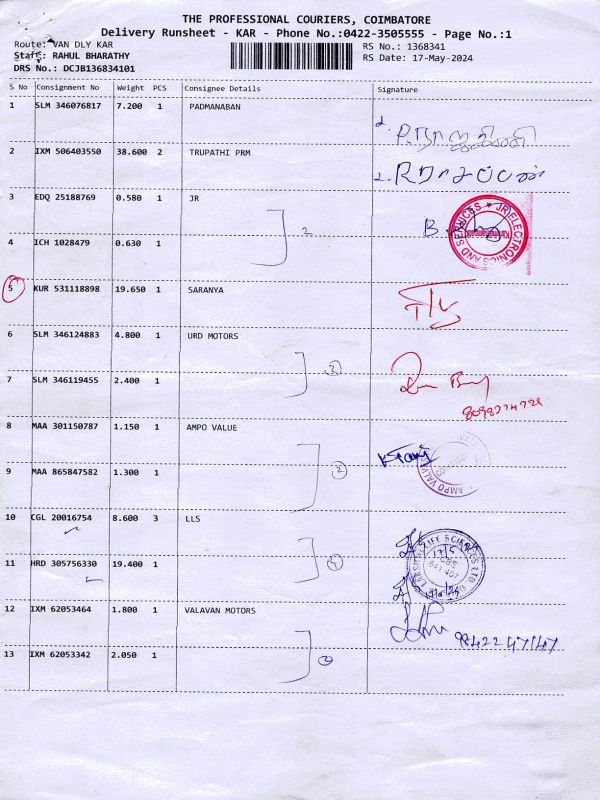 THE PROFESSIONAL COURIERS, COIMBATORE
Delivery Runsheet - KAR - Phone No.:0422-3505555 - Page No.:1
Route: VAN DLY KAR
RS No.: 1368341
Staff: RAHUL BHARATHY
RS Date: 17-May-2024
DRS No.: DCJB136834101
S No Consignment No Weight PCS Consignee Details Signature
1 SLM 346076817 7.200 1 PADMANABAN
2 IXM 506403550 38.600 2 TRUPATHI PRM
2.
3 EDQ 25188769 0.580 1 JR
JR ELECTRONICS AND SERVICES
2
4 ICH 1028479 0.630 1
5 KUR 531118898 19.650 1 SARANYA
6 SLM 346124883 4.800 1 URD MOTORS
2
7 SLM 346119455 2.400 1
8 MAA 301150787 1.150 1 AMPO VALUE
AMPO VALV
2
9 MAA 865847582 1.300 1
10 CGL 20016754 8.600 3 LLS
LIFE SCIENCES
17/5/24
CBE
641 407
4
11 HRD 305756330 19.400 1
12 IXM 62053464 1.800 1 VALAVAN MOTORS
9842247147
2
13 IXM 62053342 2.050 1